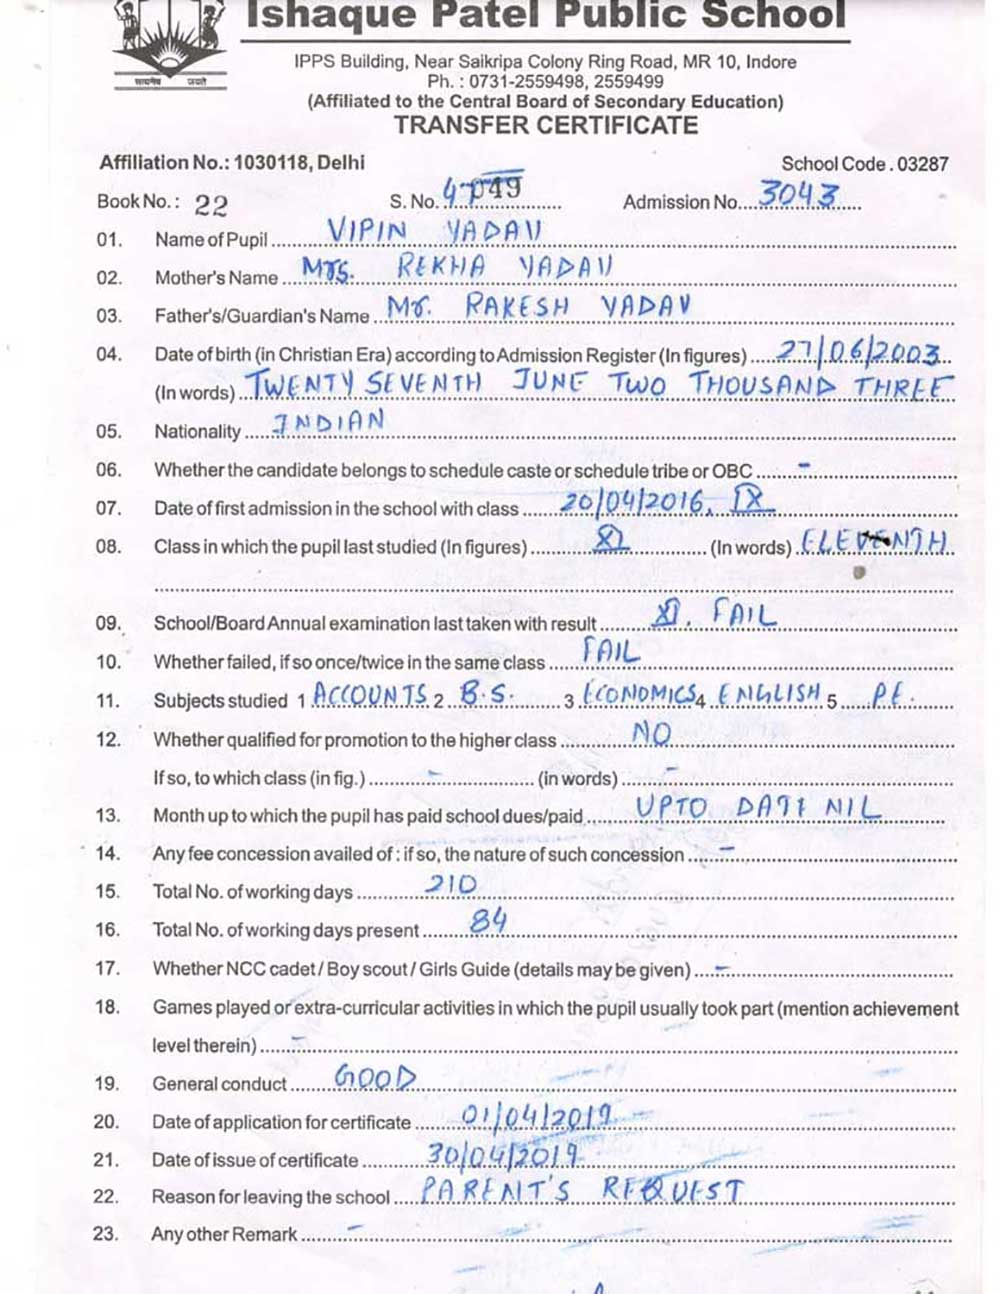 सत्यमेव जयते
Ishaque Patel Public School
IPPS Building, Near Saikripa Colony Ring Road, MR 10, Indore
Ph. : 0731-2559498, 2559499
(Affiliated to the Central Board of Secondary Education)
TRANSFER CERTIFICATE
Affiliation No.: 1030118, Delhi School Code . 03287
Book No.: 22 S. No. 4049 Admission No. 3043
01. Name of Pupil VIPIN YADAV
02. Mother's Name Mrs. REKHA YADAV
03. Father's/Guardian's Name Mr. RAKESH YADAV
04. Date of birth (in Christian Era) according to Admission Register (In figures) 27/06/2003
(In words) TWENTY SEVENTH JUNE TWO THOUSAND THREE
05. Nationality INDIAN
06. Whether the candidate belongs to schedule caste or schedule tribe or OBC -
07. Date of first admission in the school with class 20/04/2016, IX
08. Class in which the pupil last studied (In figures) XI (In words) ELEVENTH
09. School/Board Annual examination last taken with result XI, FAIL
10. Whether failed, if so once/twice in the same class FAIL
11. Subjects studied 1 ACCOUNTS 2 B.S. 3 ECONOMICS 4 ENGLISH 5 P.E.
12. Whether qualified for promotion to the higher class NO
If so, to which class (in fig.) - (in words) -
13. Month up to which the pupil has paid school dues/paid UPTO DATE NIL
14. Any fee concession availed of : if so, the nature of such concession -
15. Total No. of working days 210
16. Total No. of working days present 84
17. Whether NCC cadet / Boy scout / Girls Guide (details may be given) -
18. Games played or extra-curricular activities in which the pupil usually took part (mention achievement
level therein) -
19. General conduct GOOD
20. Date of application for certificate 01/04/2019
21. Date of issue of certificate 30/04/2019
22. Reason for leaving the school PARENT'S REQUEST
23. Any other Remark -